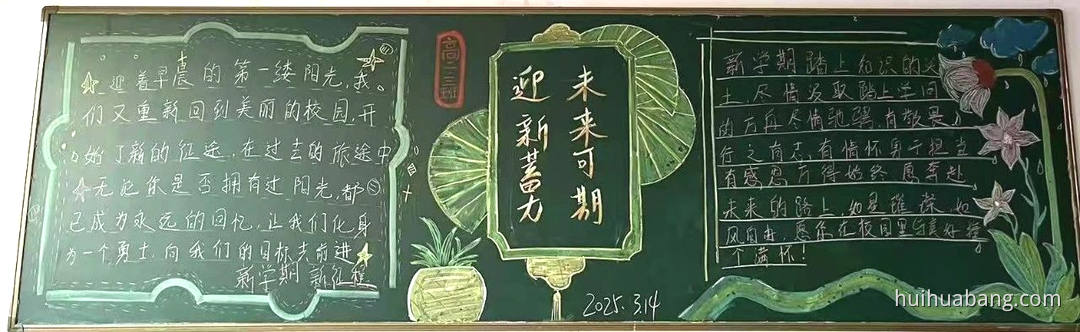 迎着早晨的第一缕阳光,我
们又重新回到美丽的校园,开
始了新的征途,在过去的旅途中
无论你是否拥有过阳光,都
已成为永远的回忆,让我们化身
为一个勇士,向我们的目标去前进
新学期 新征程
高二三班
未来可期
迎新蓄力
2025.3.14
新学期踏上知识的
土,尽情汲取踏上学问
的方舟尽情驰骋,有敬畏
行之有志,有情怀勇于担当
有感恩方得始终愿奔赴
未来的路上,如星璀璨,如
风自由,愿你在校园里与美好撞
个满怀!
huihuabang.com